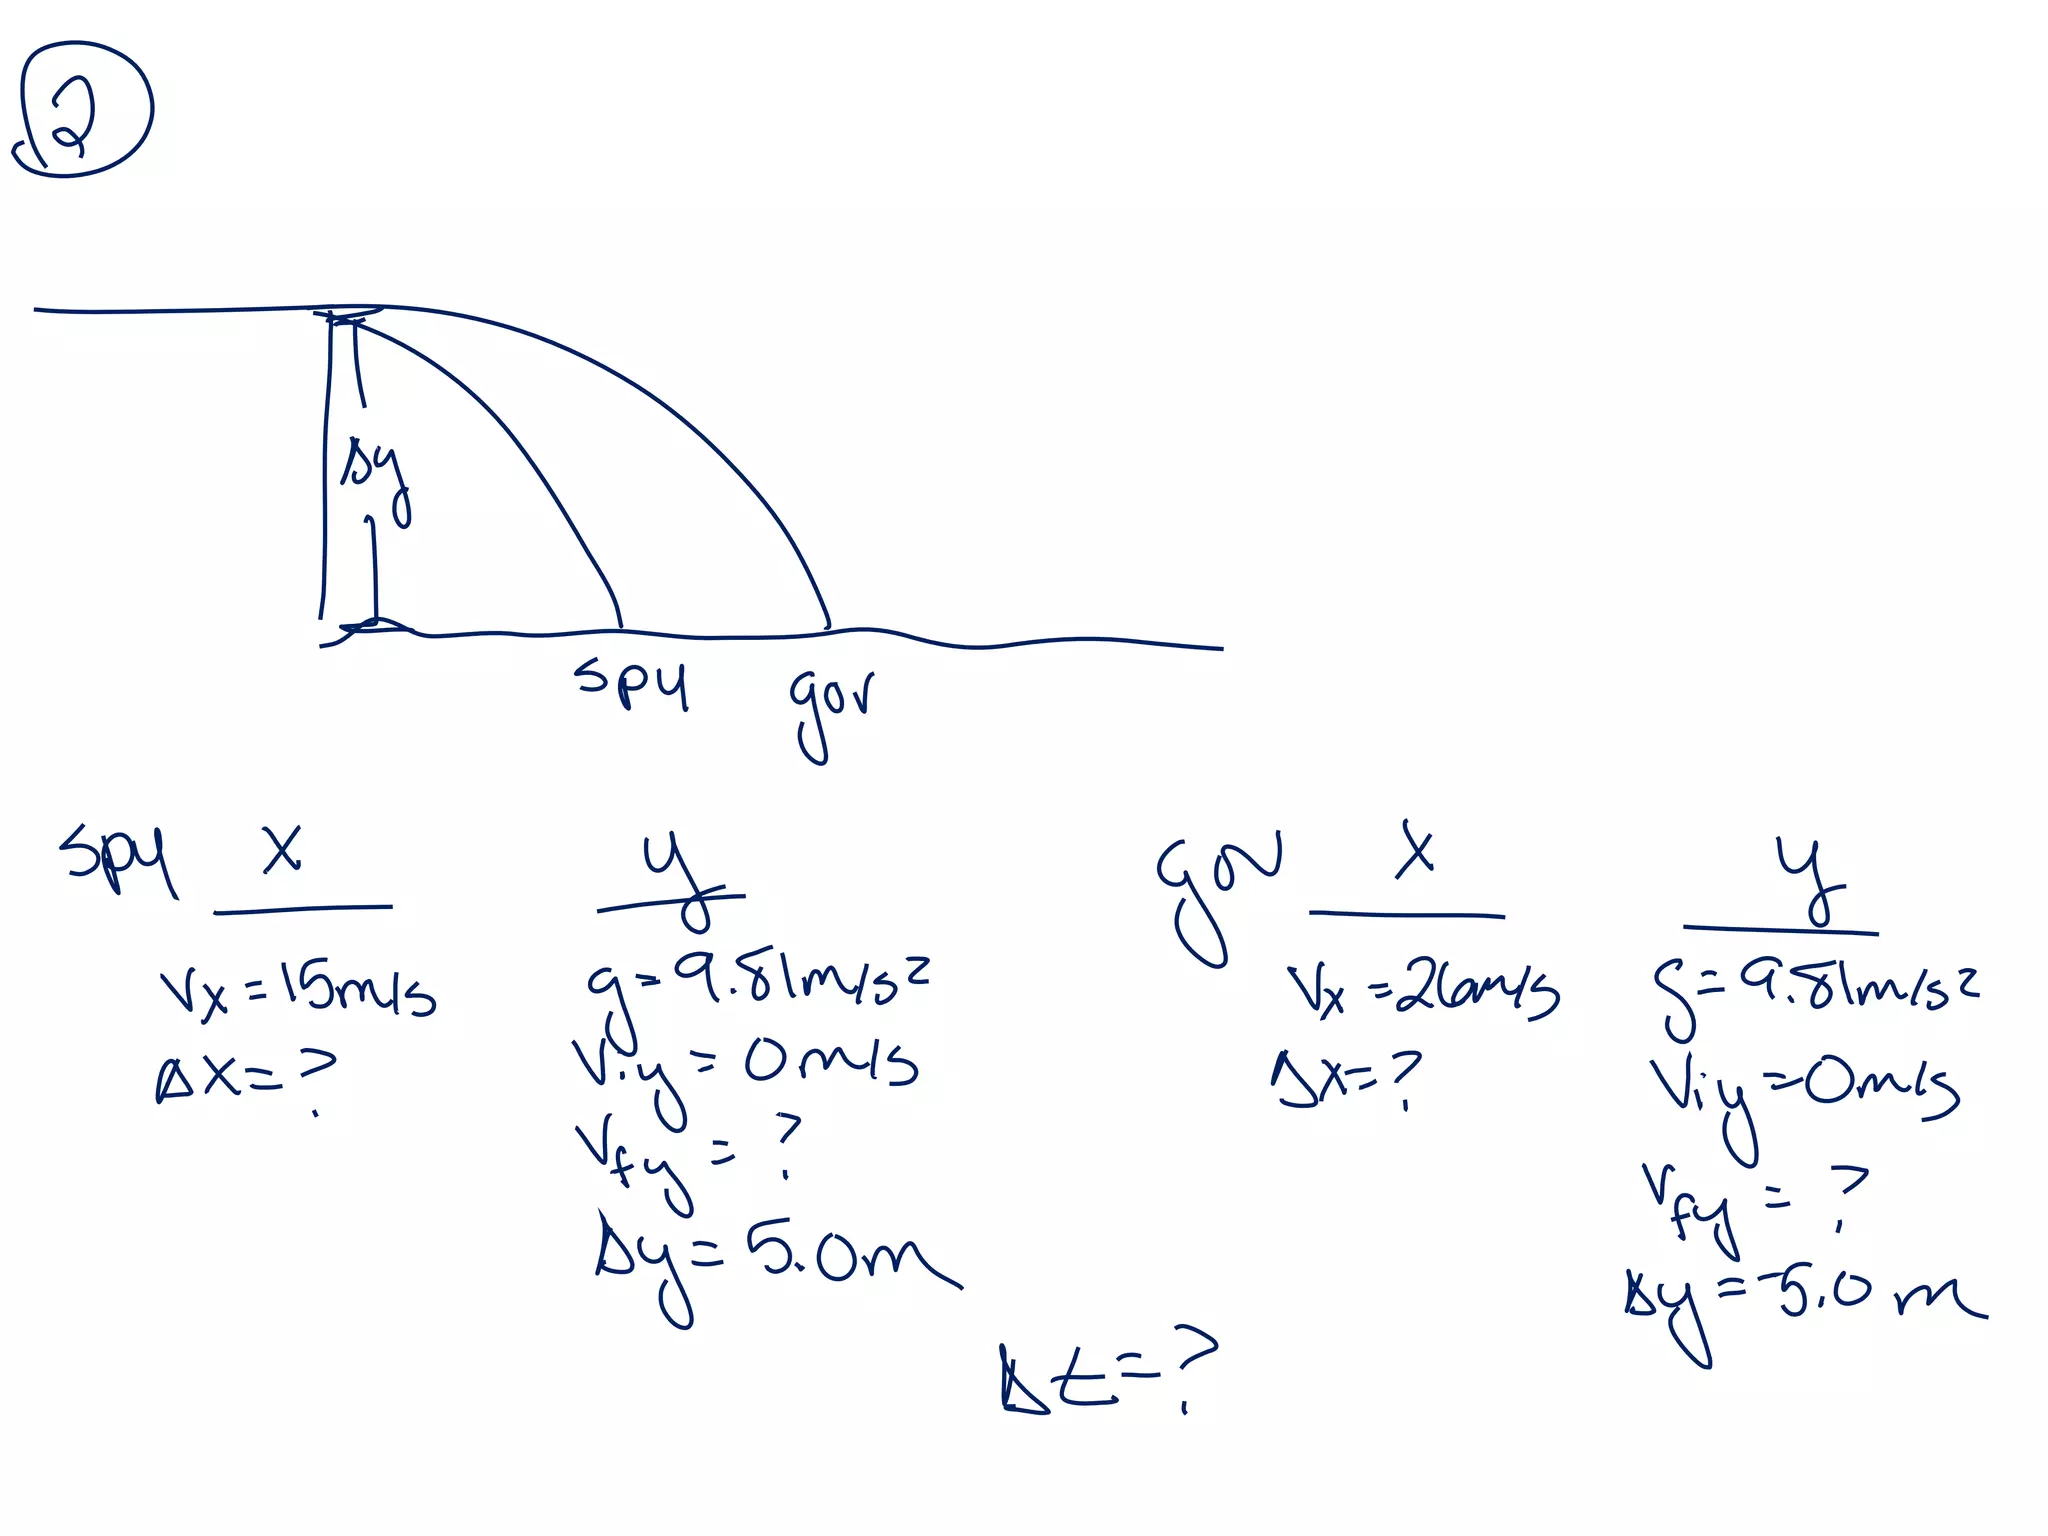 2
Δy
spy gov
spy x y
vx = 15m/s g = 9.81m/s²
Δx = ? viy = 0m/s
vfy = ?
Δy = 5.0m
gov x y
vx = 26m/s g = 9.81m/s²
Δx = ? viy = 0m/s
vfy = ?
Δy = -5.0m
Δt = ?